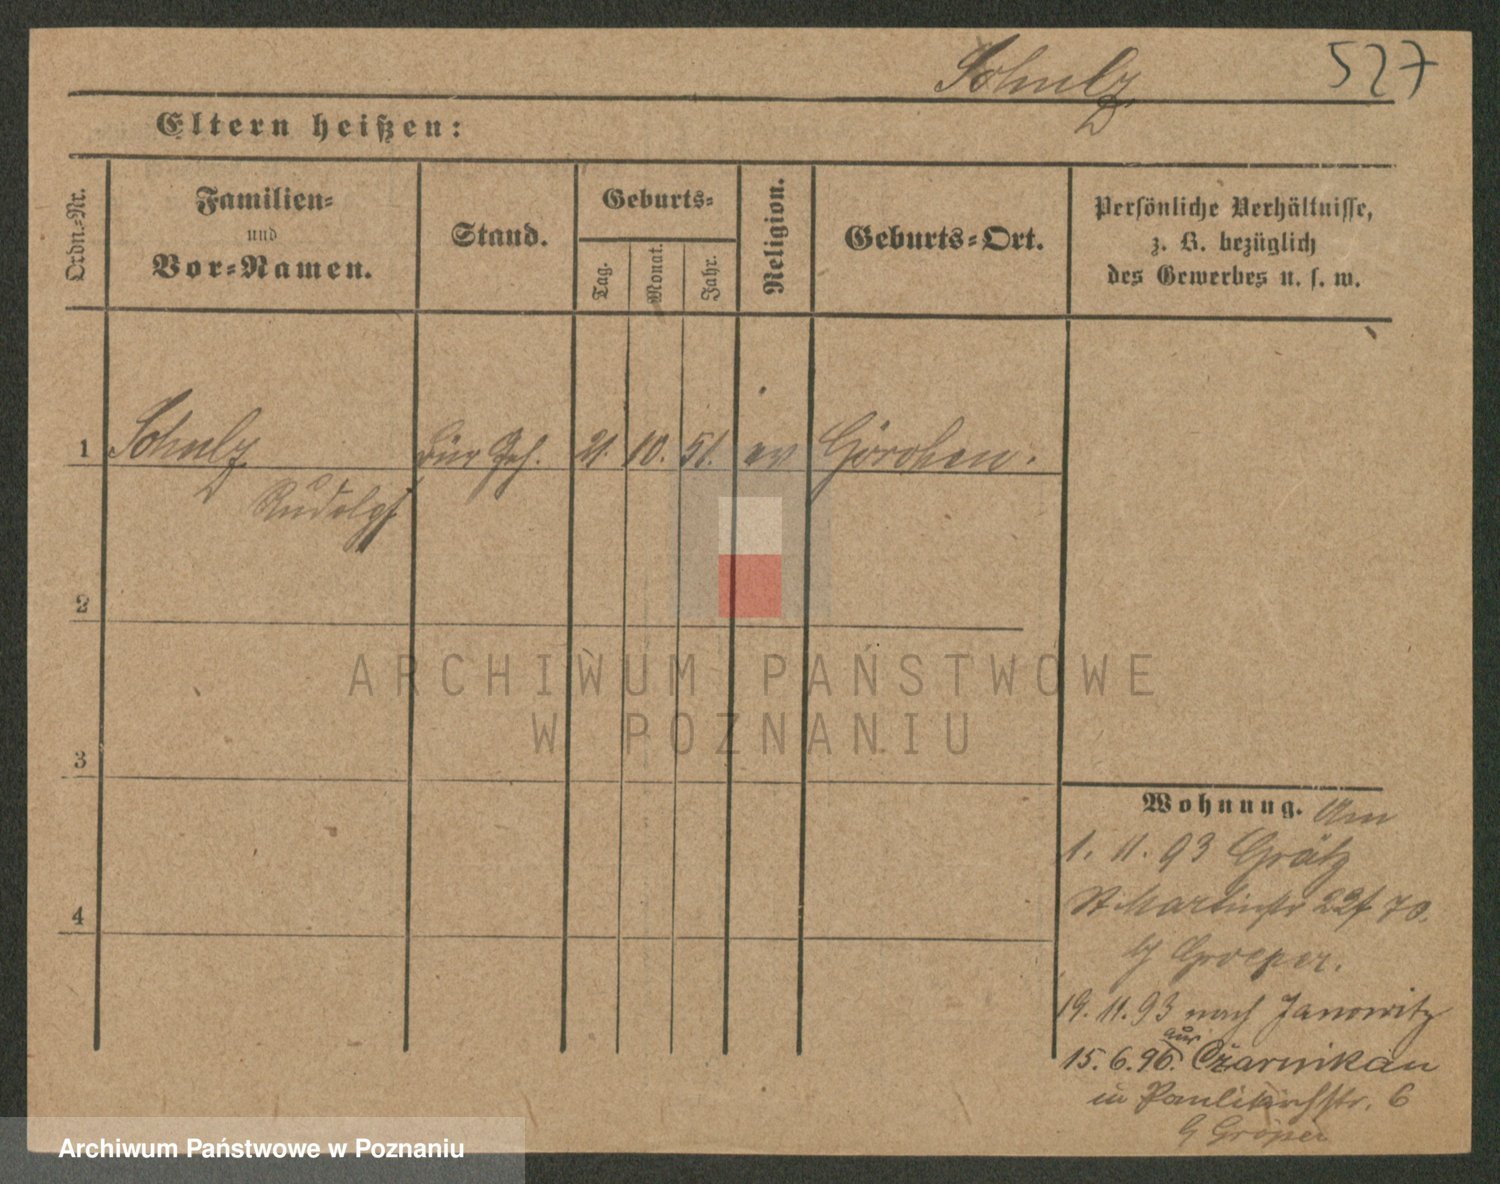 Schulz
527
Eltern heißen:
Ordn.-Nr.
Familien-
und
Vor-Namen.
Stand.
Geburts-
Tag.
Monat.
Jahr.
Religion.
Geburts-Ort.
Persönliche Verhältnisse,
z. B. bezüglich
des Gewerbes u. s. w.
1 Schulz Bür Geh. 21. 10. 51. ev Görchen.
Rudolph
2
ARCHIWUM PAŃSTWOWE
W POZNANIU
3
Wohnung. Am
4
1. 11. 93 Grätz
St Martinstr 22/ 70.
b/ Groeper.
19. 11. 93 nach Janowitz
15. 6. 96. aus Czarnikau
in Paulikirchstr. 6
b/ Gröper
Archiwum Państwowe w Poznaniu